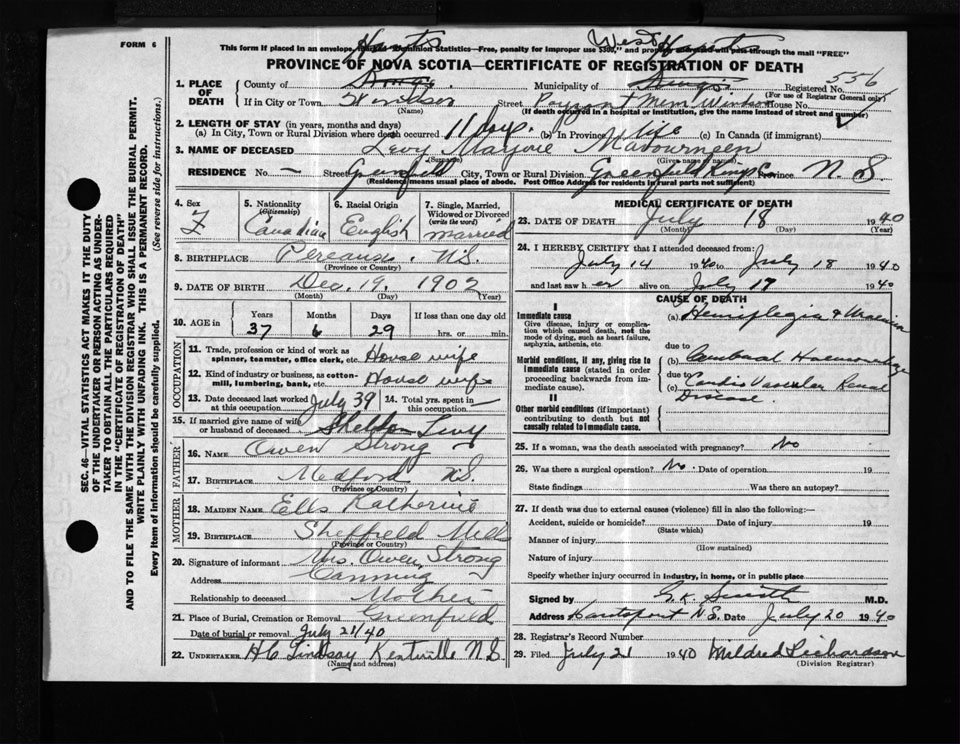 FORM 6
This form if placed in an envelope, marked "Dominion Statistics—Free, penalty for improper use $300," and properly addressed will pass through the mail "FREE"
Hants West Hants
PROVINCE OF NOVA SCOTIA—CERTIFICATE OF REGISTRATION OF DEATH
1. PLACE OF DEATH County of Kings Municipality of Kings Registered No. 556
(For use of Registrar General only)
If in City or Town Windsor Street Payzant Mem Windsor House No.
(Name) (If death occurred in a hospital or institution, give the name instead of street and number)
2. LENGTH OF STAY (in years, months and days)
(a) In City, Town or Rural Division where death occurred 11 days. (b) In Province life (c) In Canada (if immigrant)
3. NAME OF DECEASED Levy Marjorie Mavourneen
(Surname) (Given name or names)
RESIDENCE No. — Street Greenfield City, Town or Rural Division Greenfield Kings Co Province N. S.
(Residence means usual place of abode. Post Office Address for residents in rural parts not sufficient)
4. Sex F
5. Nationality (Citizenship) Canadian
6. Racial Origin English
7. Single, Married, Widowed or Divorced (write the word) married
8. BIRTHPLACE Pereaux. N.S.
(Province or Country)
9. DATE OF BIRTH Dec. 19. 1902
(Month) (Day) (Year)
10. AGE in Years 37 Months 6 Days 29 If less than one day hrs. or min.
OCCUPATION
11. Trade, profession or kind of work as spinner, teamster, office clerk, etc. House wife
12. Kind of industry or business, as cotton-mill, lumbering, bank, etc. House wife
13. Date deceased last worked at this occupation July 39 14. Total yrs. spent in this occupation
15. If married give name of wife or husband of deceased Sheldon Levy
FATHER
16. Name Owen Strong
17. Birthplace Medford N.S.
(Province or Country)
MOTHER
18. Maiden Name Ells Katherine
19. Birthplace Sheffield Mills
(Province or Country)
20. Signature of informant Mrs. Owen Strong
Address Canning
Relationship to deceased Mother
21. Place of Burial, Cremation or Removal Greenfield
Date of burial or removal July 21/40
22. UNDERTAKER H C Lindsay Kentville N S.
(Name and address)
MEDICAL CERTIFICATE OF DEATH
23. DATE OF DEATH July 18 1940
(Month) (Day) (Year)
24. I HEREBY CERTIFY that I attended deceased from:
July 14 1940 to July 18 1940
and last saw h er alive on July 17 1940
CAUSE OF DEATH
I
Immediate cause
Give disease, injury or complication which caused death, not the mode of dying, such as heart failure, asphyxia, asthenia, etc
(a) Hemiplegia & Uraemia
due to
Morbid conditions, if any, giving rise to immediate cause (stated in order proceeding backwards from immediate cause).
(b) Cerebral Haemorrhage
due to
(c) Cardio Vascular Renal Disease.
II
Other morbid conditions (if important) contributing to death but not causally related to immediate cause.
25. If a woman, was the death associated with pregnancy? No
26. Was there a surgical operation? No. Date of operation 19
State findings Was there an autopsy?
27. If death was due to external causes (violence) fill in also the following:—
Accident, suicide or homicide? Date of injury 19
(State which)
Manner of injury
(How sustained)
Nature of injury
Specify whether injury occurred in industry, in home, or in public place
Signed by G. K. Smith M.D.
Address Hantsport N.S. Date July 20 1940
28. Registrar's Record Number
29. Filed July 21 1940 Mildred Richardson
(Division Registrar)
SEC. 46—VITAL STATISTICS ACT MAKES IT THE DUTY
OF THE UNDERTAKER OR PERSON ACTING AS UNDER-
TAKER TO OBTAIN ALL THE PARTICULARS REQUIRED
IN THE "CERTIFICATE OF REGISTRATION OF DEATH"
AND TO FILE THE SAME WITH THE DIVISION REGISTRAR WHO SHALL ISSUE THE BURIAL PERMIT.
WRITE PLAINLY WITH UNFADING INK. THIS IS A PERMANENT RECORD.
Every item of information should be carefully supplied. (See reverse side for instructions.)